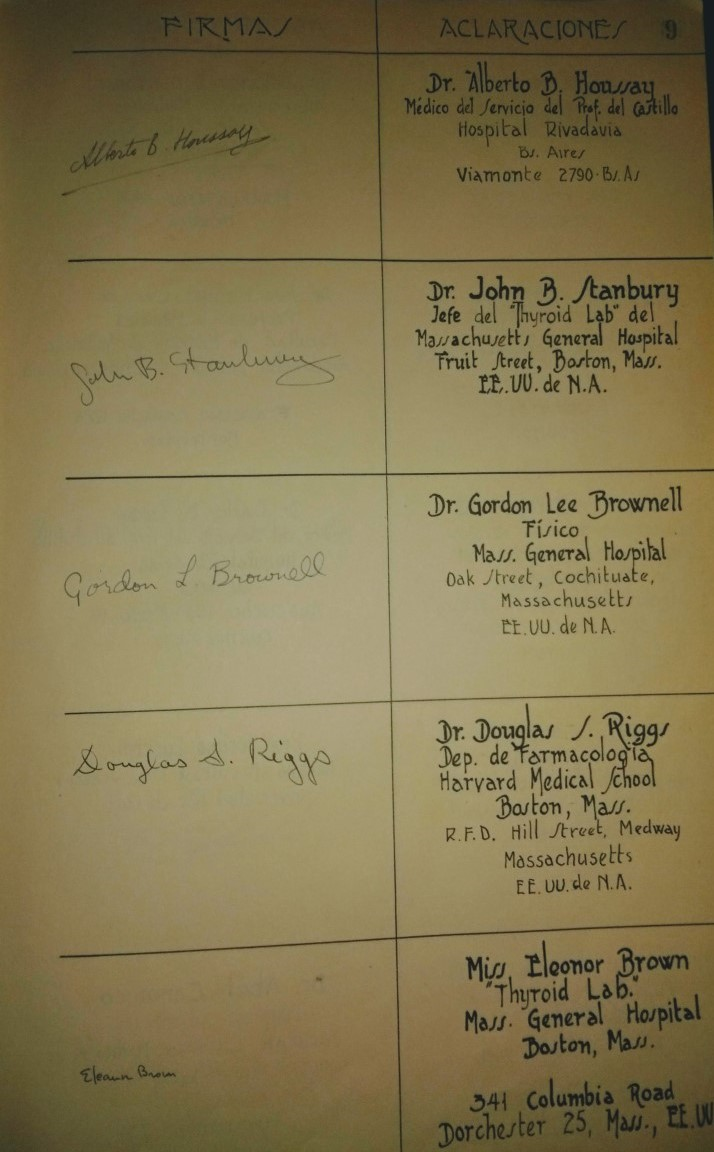 FIRMAS
ACLARACIONES 9
Alberto B. Houssay
Dr. Alberto B. Houssay
Médico del Servicio del Prof. del Castillo
Hospital Rivadavia
Bs. Aires
Viamonte 2790-Bs.As
John B. Stanbury
Dr. John B. Stanbury
Jefe del "Thyroid Lab" del
Massachusetts General Hospital
Fruit Street, Boston, Mass.
EE.UU. de N.A.
Gordon L. Brownell
Dr. Gordon Lee Brownell
Físico
Mass. General Hospital
Oak Street, Cochituate,
Massachusetts
EE.UU. de N.A.
Douglas S. Riggs
Dr. Douglas S. Riggs
Dep. de Farmacología
Harvard Medical School
Boston, Mass.
R.F.D. Hill Street, Medway
Massachusetts
EE.UU. de N.A.
Eleanor Brown
Miss Eleonor Brown
"Thyroid Lab."
Mass. General Hospital
Boston, Mass.
341 Columbia Road
Dorchester 25, Mass., EE.UU